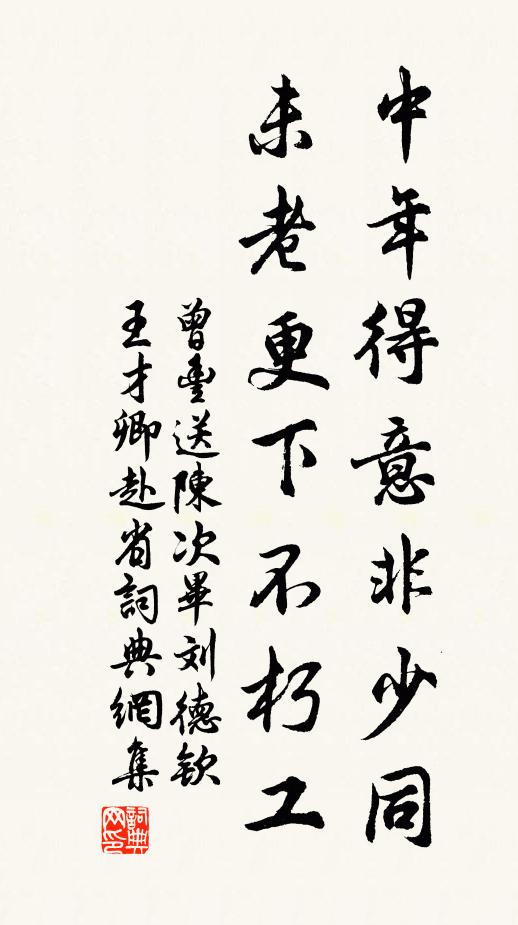 中年得意非少同
未老更下不朽工
曾豐送陳次畢刘德欽
王才卿赴省詞典網集
詞典网印